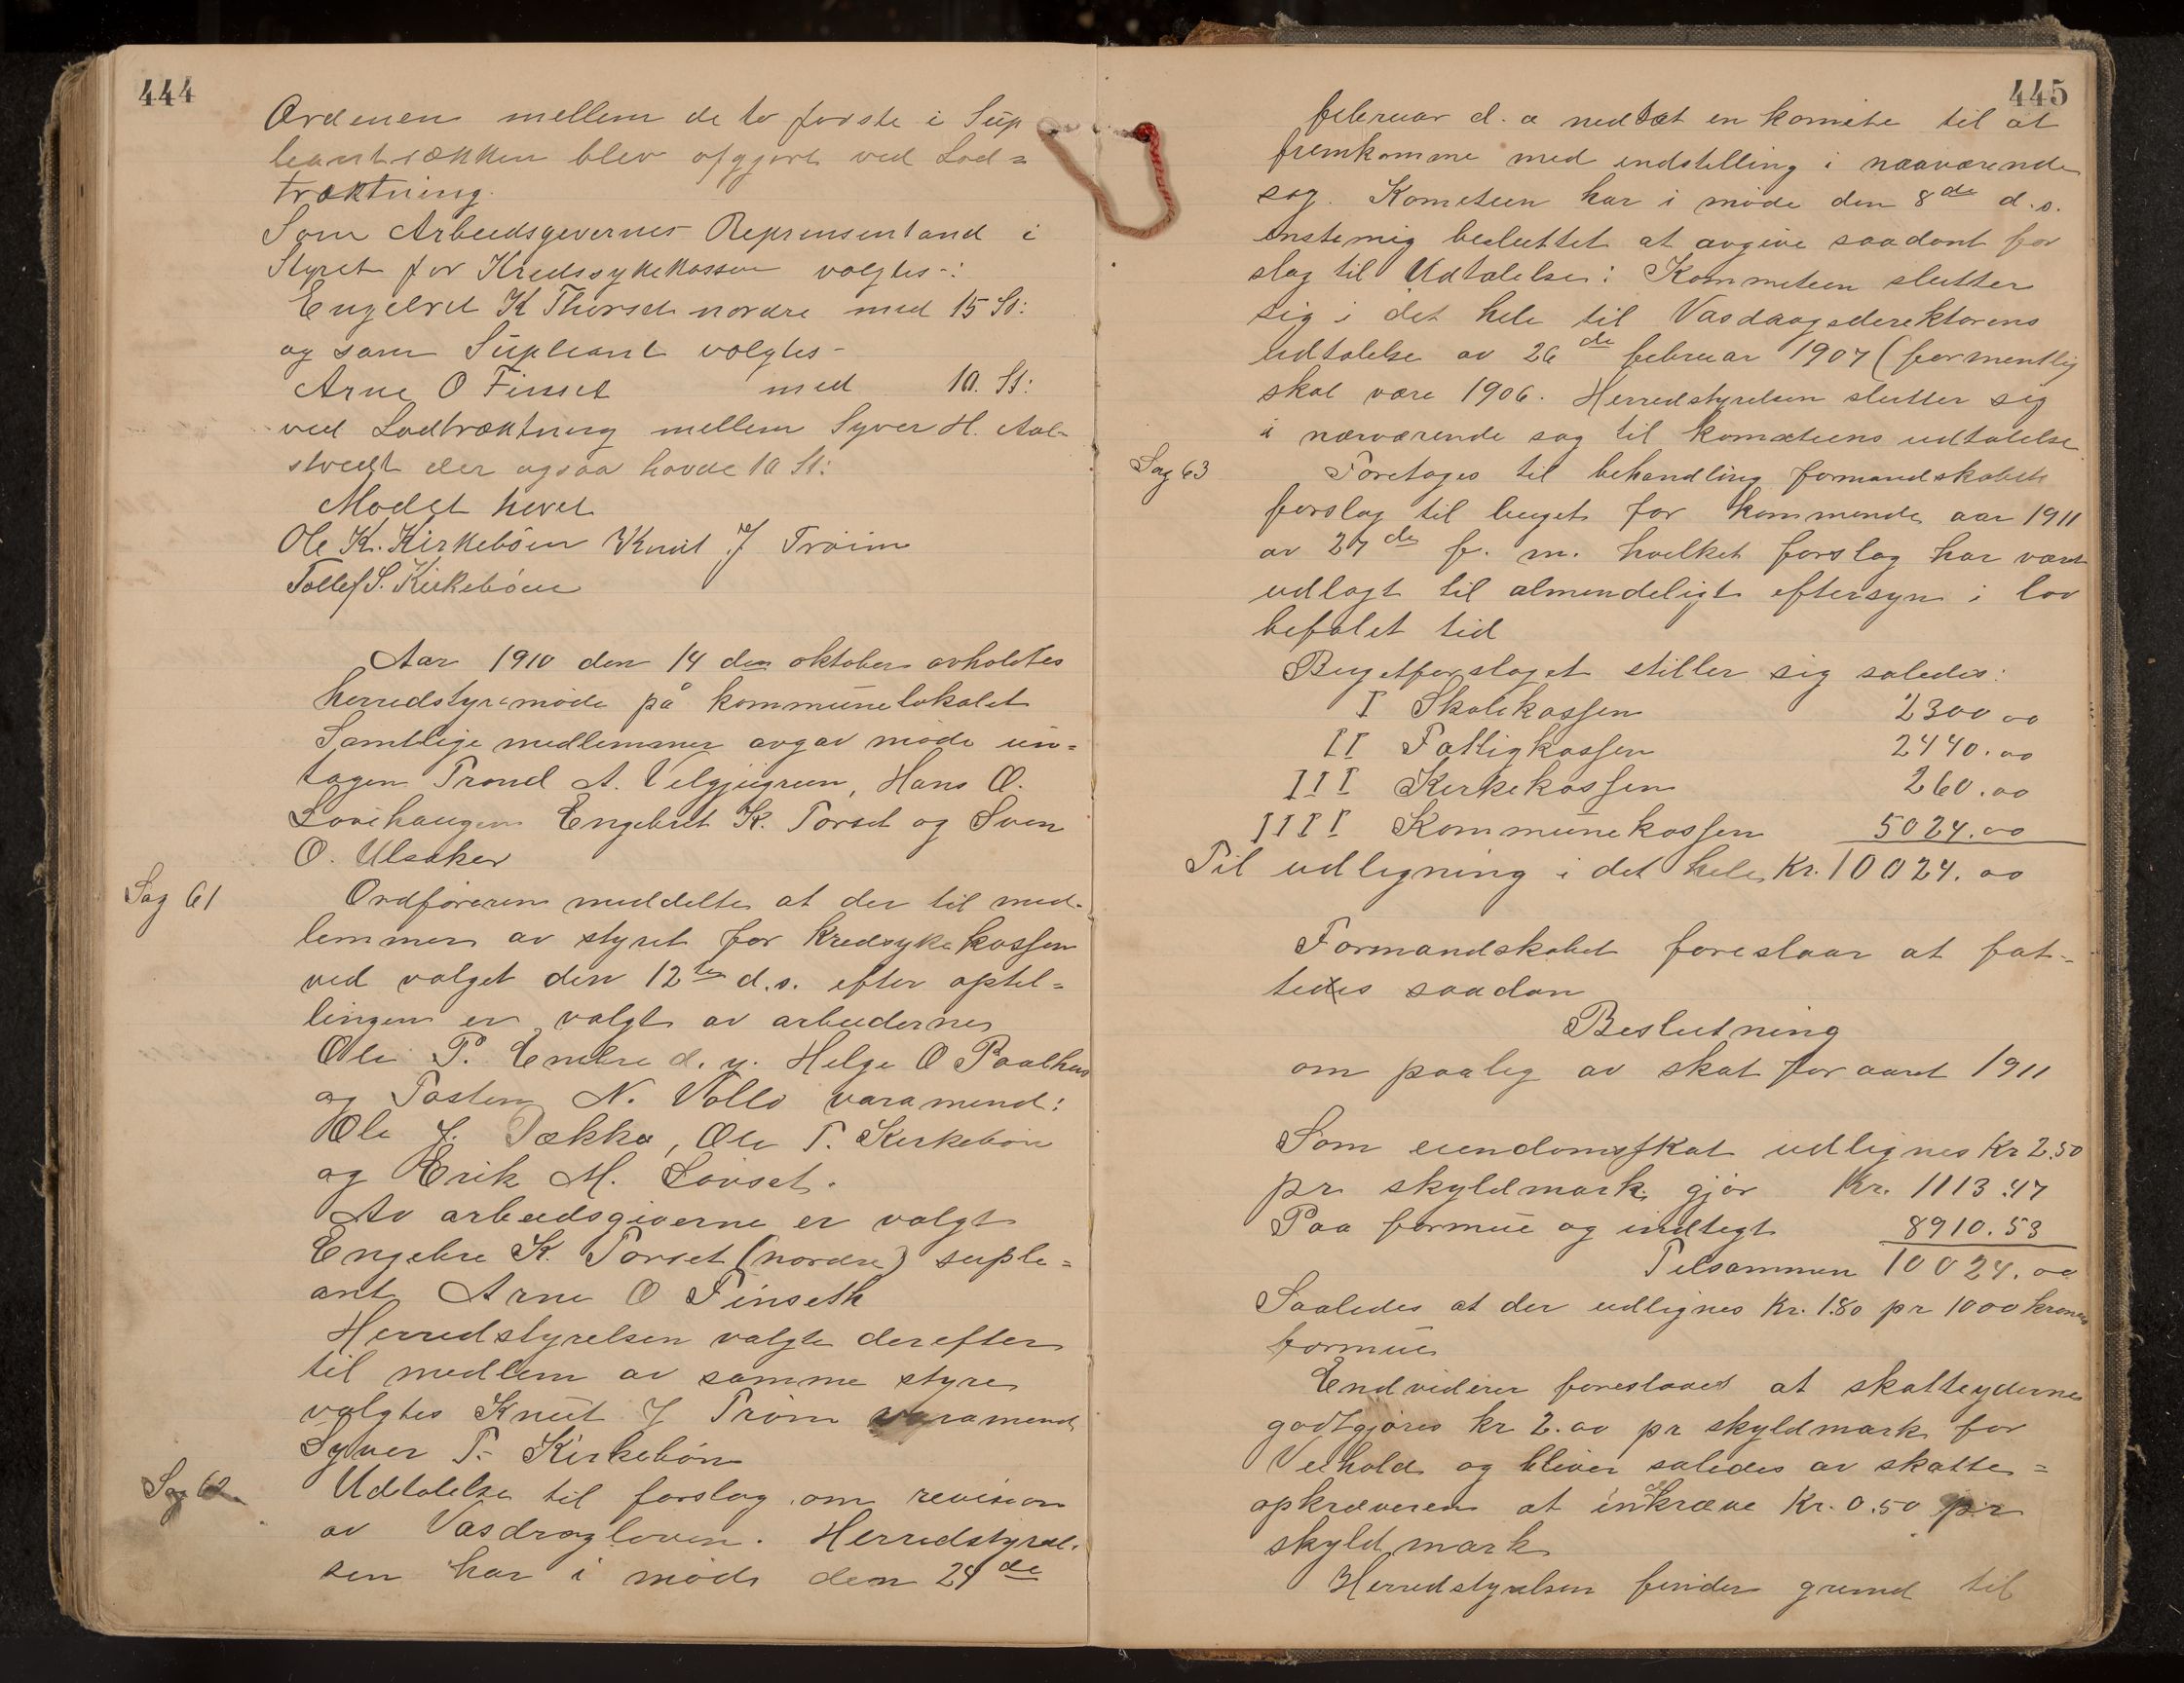 444
Ordenen mellem de to første i Sup
leantrækken blev afgjort ved Lod=
træktning.
Som Arbeidsgevernes Reprensentand i
Styret for Kredssykekassen valgtes:
Engebret K Thorset nordre med 15 St:
og som Supleant valgtes-
Arne O Finset med 10. St:
ved Lodtræktning mellem Syver H. Aal-
stvedt der ogsaa havde 10 St:
Mødet hevet
Ole K. Kirkebøen Knut J Trøim
Tollef S. Kirkebøen
Aar 1910 den 14 den oktober avholdtes
herredstyremøde på kommunelokalet
Samtlige medlemmer avgav møde un=
tagen Trond A. Velgjugreen, Hans O.
Lovehaugen Engebret K. Torset og Sven
O. Ulsaker
Sag 61
Ordføreren meddelte at der til med-
lemmer av styret for Kredsykekassen
ved valget den 12te d.s. efter optel=
lingen er valgt av arbeiderne
Ole P. Embre d. y. Helge O Paalhus
og Tosten N. Vollo varamend:
Ole J. Dokka, Ole T. Kirkebøn
og Erik M. Sørset.
Av arbeidsgiverne er valgt
Engebre K. Torset (nordre) suple=
ant Arne O Finseth
Herredstyrelsen valgte derefter
til medlem av samme styre
valgtes Knut J Trøim varamend
Syver T. Kirkebøn
Sag 62
Udtalelse til forslag om revision
av Vasdragloven. Herredstyrel-
sen har i møde den 24de
445
februar d. a nedsat en komite til at
fremkomme med indstilling i nærværende
sag. Kometeen har i møde den 8de d.s.
enstemig besluttet at avgive saadant for
slag til Udtalelse: Kommeteen slutter
sig i det hele til Vasdragsderektørens
udtalelse av 26de februar 1907 (formentlig
skal være 1906. Herredstyrelsen slutter sig
i nærværende sag til kometeens udtalelse
Sag 63
Foretages til behandling formandskabets
forslag til buget for kommende aar 1911
av 27de f. m. hvilket forslag har været
udlagt til almendeligt eftersyn i lov
befalet tid
Bugetforslaget stiller sig saledes:
I Skolekassen 2300 00
II Fattigkassen 2440.00
III Kirkekassen 260.00
IIII Kommunekassen 5024.00
Til udligning i det hele Kr. 10024.00
Formandskabet foreslaar at fat-
tedes saadan
Beslutning
om paaleg av skat for aaret 1911
Som eiendomsskat udlignes Kr 2.50
pr. skyldmark gjør Kr. 1113.47
Paa formue og indtegt 8910.53
Tilsammen 10024.00
Saaledes at der udlignes Kr. 1.80 pr 1000 kroner
formue
Endviderer foreslaaes at skatteyderne
godtgjøres kr 2.00 pr skyldmark for
Veihold og bliver saledes av skatte=
opkræveren at inkræve Kr. 0.50 pr
skyldmark
Herredstyrelsen finder grund til